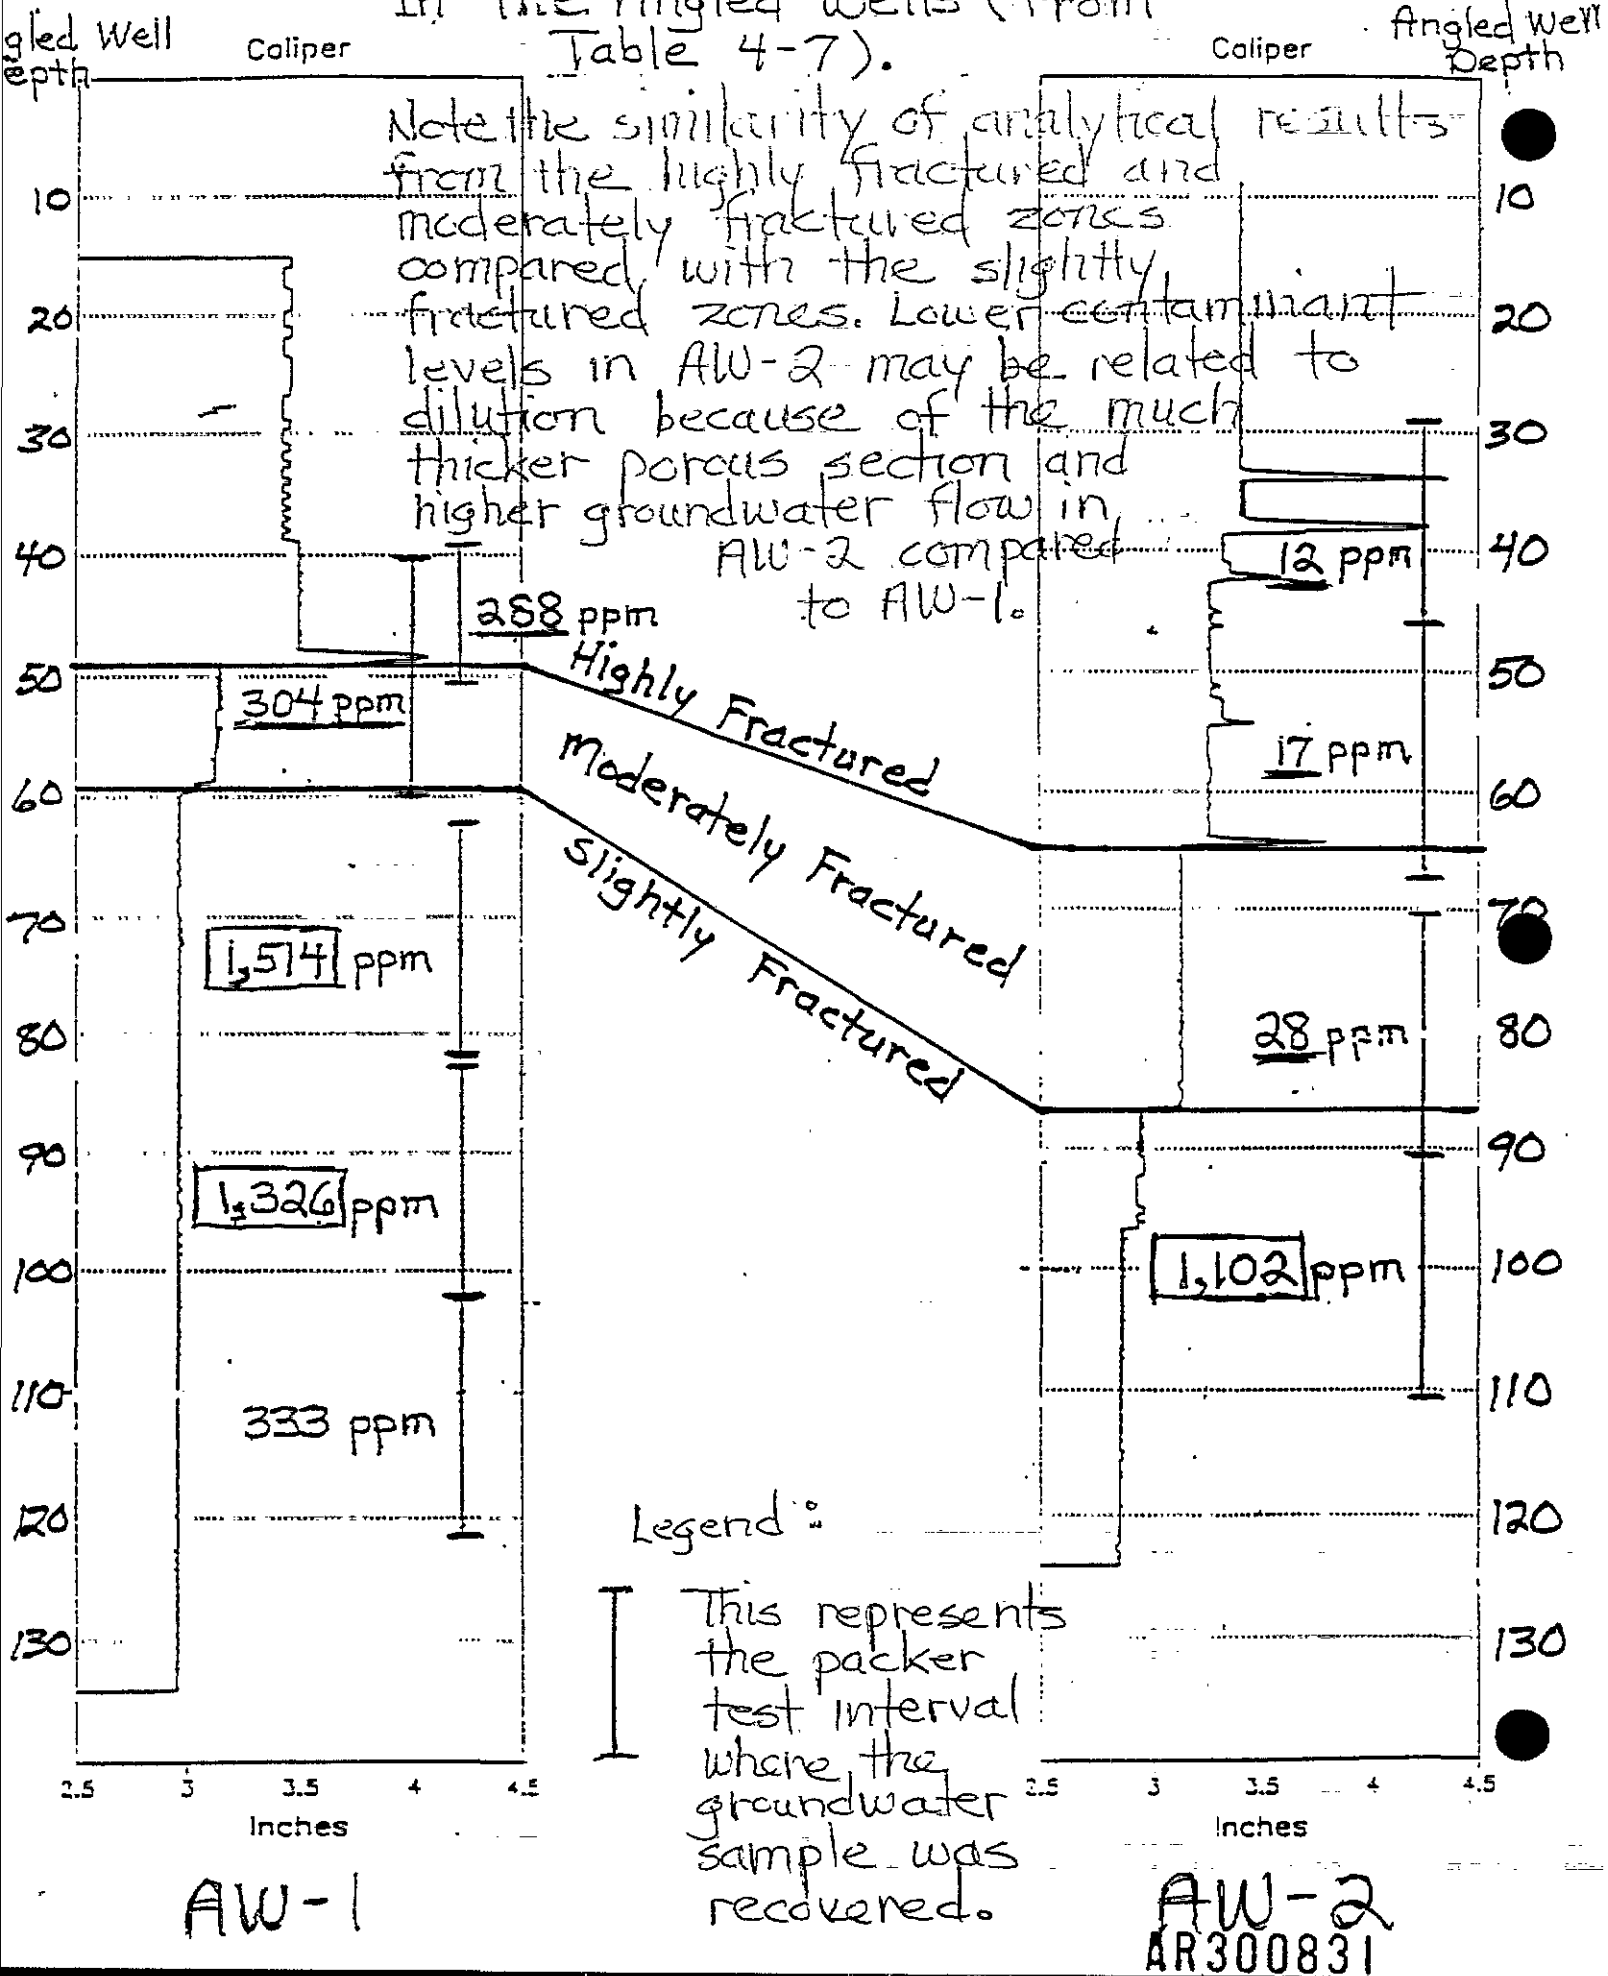 In the Angled Wells (from
Table 4-7).
gled Well
epth
Caliper
Caliper
Angled Well
Depth
Note the similarity of analytical results
from the highly fractured and
moderately fractured zones
compared with the slightly
fractured zones. Lower contaminant
levels in AW-2 may be related to
dilution because of the much
thicker porous section and
higher groundwater flow in
AW-2 compared
to AW-1.
10
20
30
40
50
60
70
80
90
100
110
120
130
288 ppm
304 ppm
1,514 ppm
1,326 ppm
333 ppm
Highly Fractured
Moderately Fractured
Slightly Fractured
12 ppm
17 ppm
28 ppm
1,102 ppm
10
20
30
40
50
60
70
80
90
100
110
120
130
Legend:
This represents
the packer
test interval
where the
groundwater
sample was
recovered.
2.5 3 3.5 4 4.5
Inches
AW-1
2.5 3 3.5 4 4.5
Inches
AW-2
AR300831